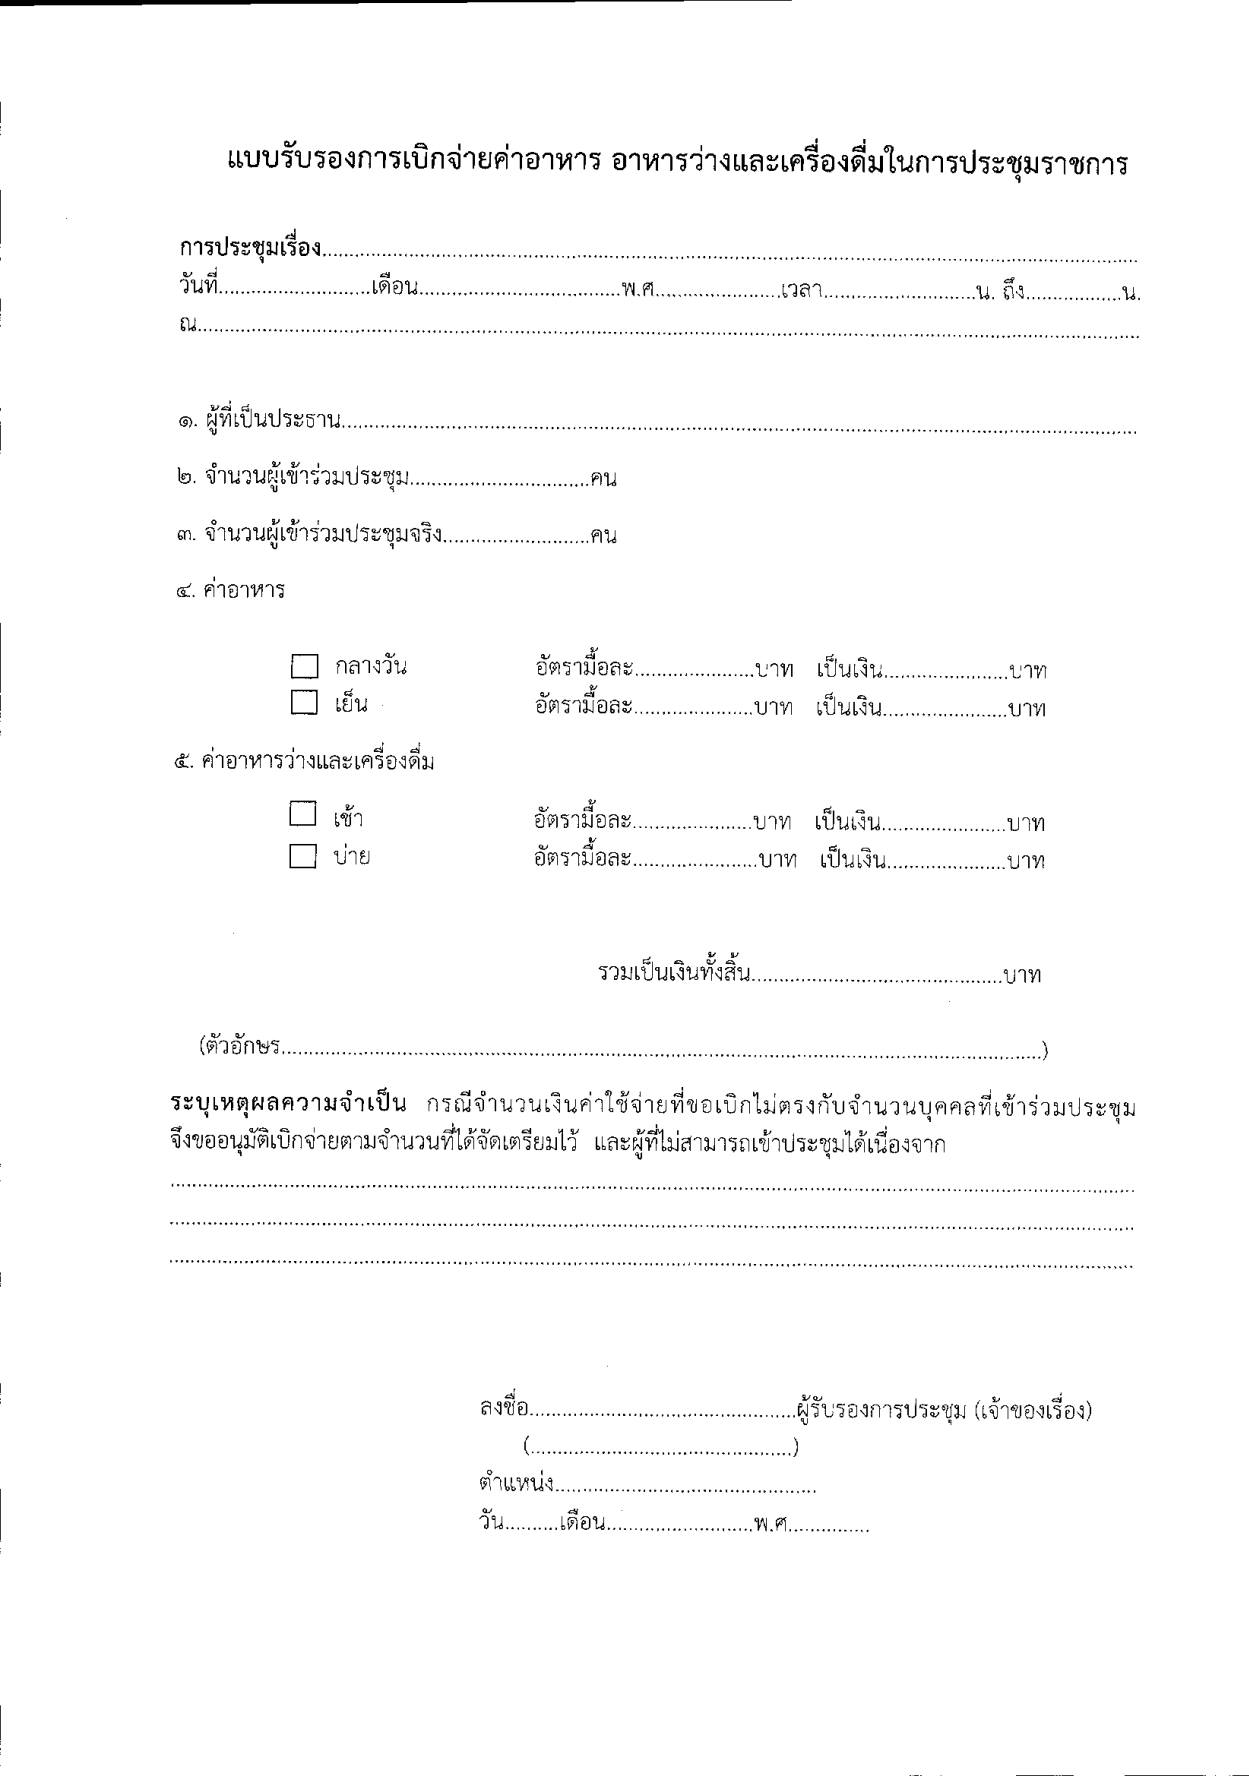 แบบรับรองการเบิกจ่ายค่าอาหาร อาหารว่างและเครื่องดื่มในการประชุมราชการ
การประชุมเรื่อง................................................................................
วันที่............................เดือน.....................................พ.ศ.......................เวลา............................น. ถึง.................น.
ณ................................................................................
๑. ผู้ที่เป็นประธาน................................................................................
๒. จำนวนผู้เข้าร่วมประชุม.................................คน
๓. จำนวนผู้เข้าร่วมประชุมจริง...........................คน
๔. ค่าอาหาร
☐ กลางวัน อัตรามื้อละ......................บาท เป็นเงิน.......................บาท
☐ เย็น อัตรามื้อละ......................บาท เป็นเงิน.......................บาท
๕. ค่าอาหารว่างและเครื่องดื่ม
☐ เช้า อัตรามื้อละ......................บาท เป็นเงิน.......................บาท
☐ บ่าย อัตรามื้อละ.......................บาท เป็นเงิน......................บาท
รวมเป็นเงินทั้งสิ้น..............................................บาท
(ตัวอักษร................................................................................)
ระบุเหตุผลความจำเป็น กรณีจำนวนเงินค่าใช้จ่ายที่ขอเบิกไม่ตรงกับจำนวนบุคคลที่เข้าร่วมประชุม
จึงขออนุมัติเบิกจ่ายตามจำนวนที่ได้จัดเตรียมไว้ และผู้ที่ไม่สามารถเข้าประชุมได้เนื่องจาก
................................................................................
................................................................................
................................................................................
ลงชื่อ.................................................ผู้รับรองการประชุม (เจ้าของเรื่อง)
(................................................)
ตำแหน่ง................................................
วัน..........เดือน...........................พ.ศ...............